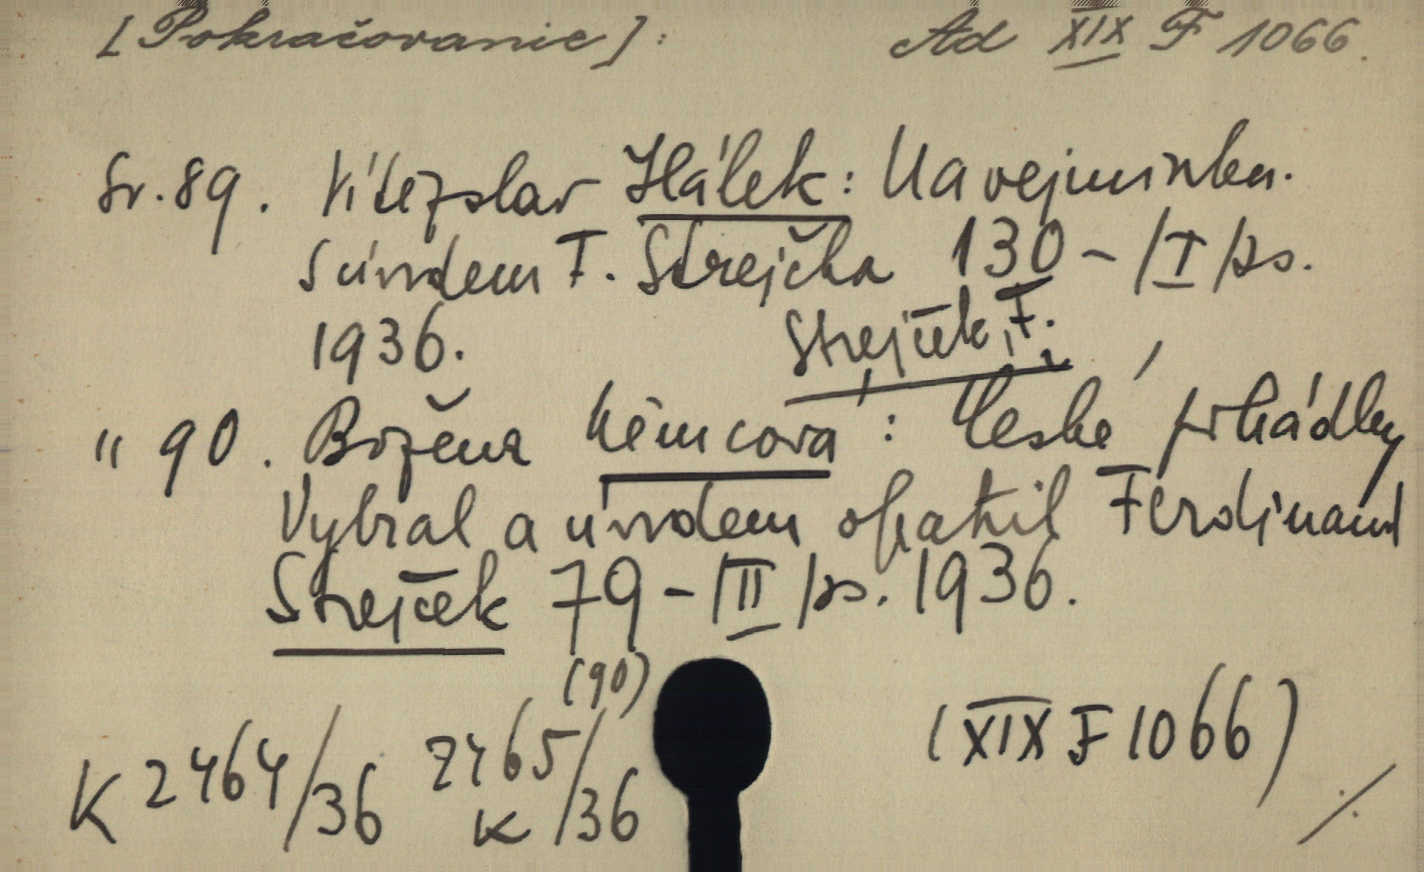 [Pokračovanie]: Ad XIX F 1066.
Sv. 89. Vítězslav Hálek: Na vejminku.
S úvodem F. Strejčka 130 - /I/ s.
1936. Strejček, F.
" 90. Božena Němcová: České pohádky
Vybral a úvodem opatřil Ferdinand
Strejček 79 - /II/ s. 1936.
(90)
K 2464/36 2465/36 K (XIX F 1066)
./.